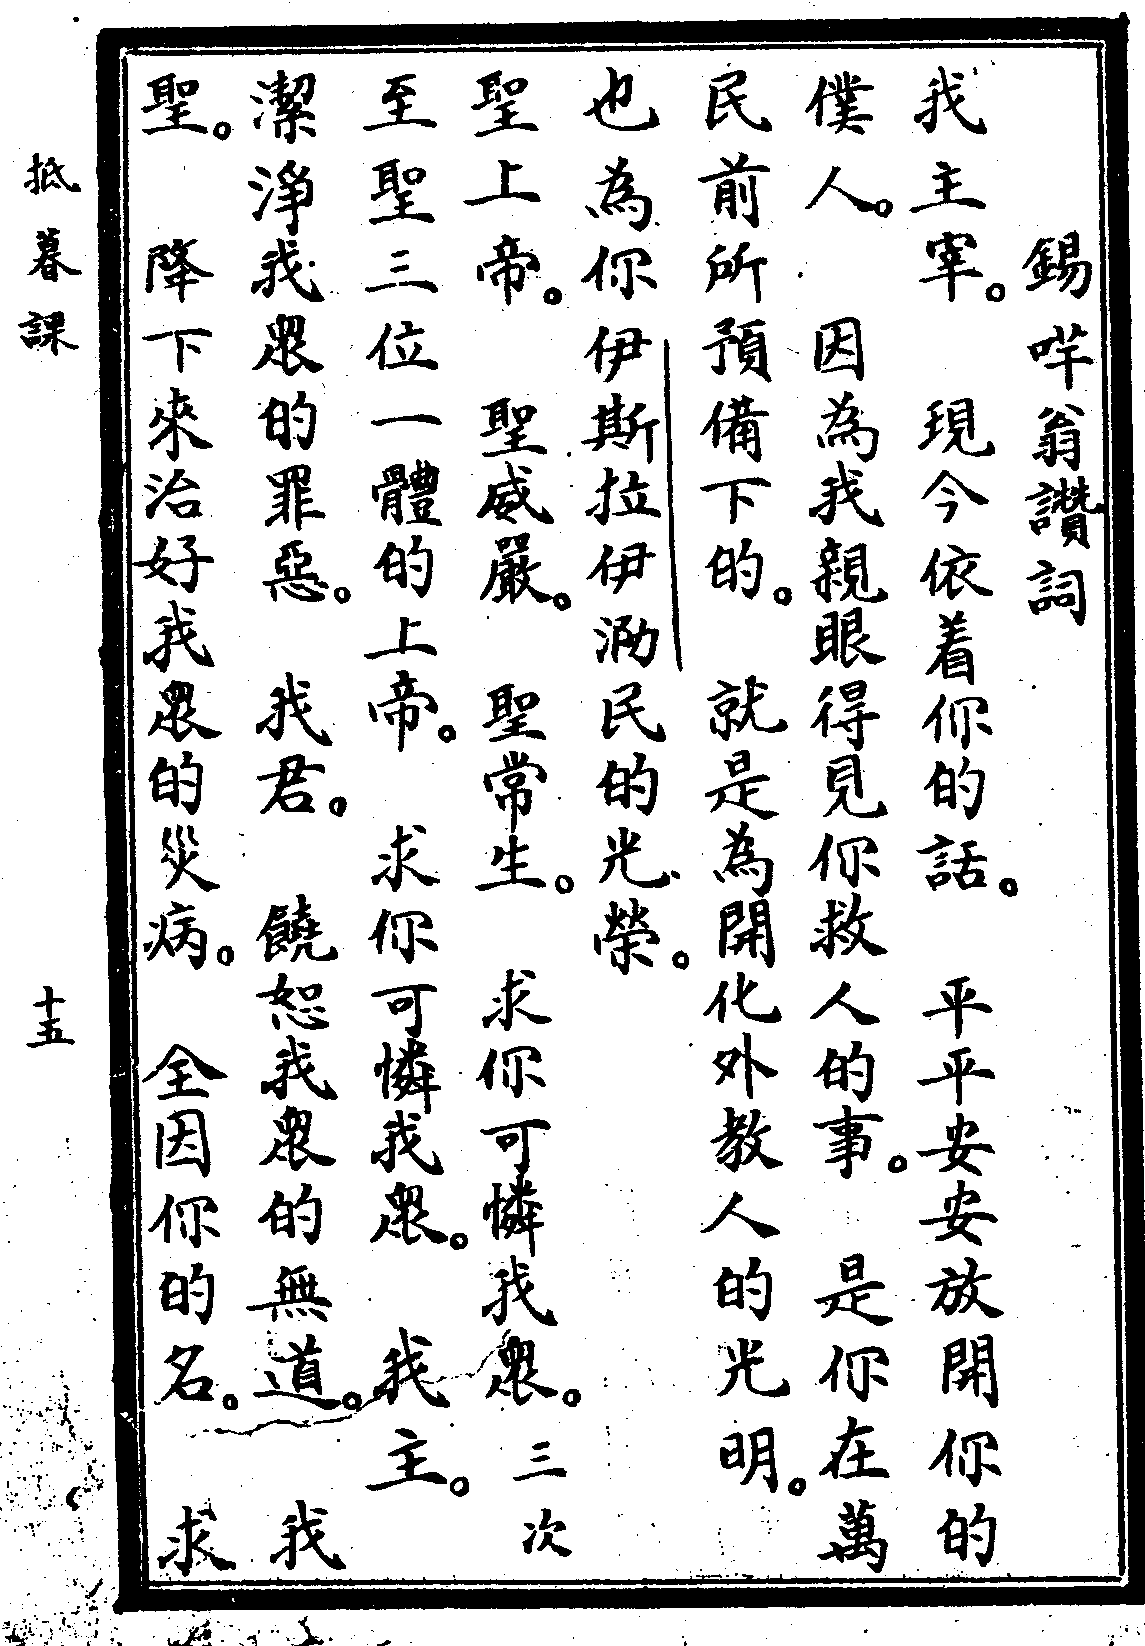 錫哶翁讚詞
我主宰。 現今依着你的話。 平平安安放開你的
僕人。 因為我親眼得見你救人的事。 是你在萬
民前所預備下的。 就是為開化外教人的光明。
也為你伊斯拉伊泐民的光榮。
聖上帝。 聖威嚴。 聖常生。 求你可憐我眾。 三次
至聖三位一體的上帝。 求你可憐我眾。 我主。
潔淨我眾的罪惡。 我君。 饒恕我眾的無道。 我
聖。 降下來治好我眾的災病。 全因你的名。 求
抵暮課
十五